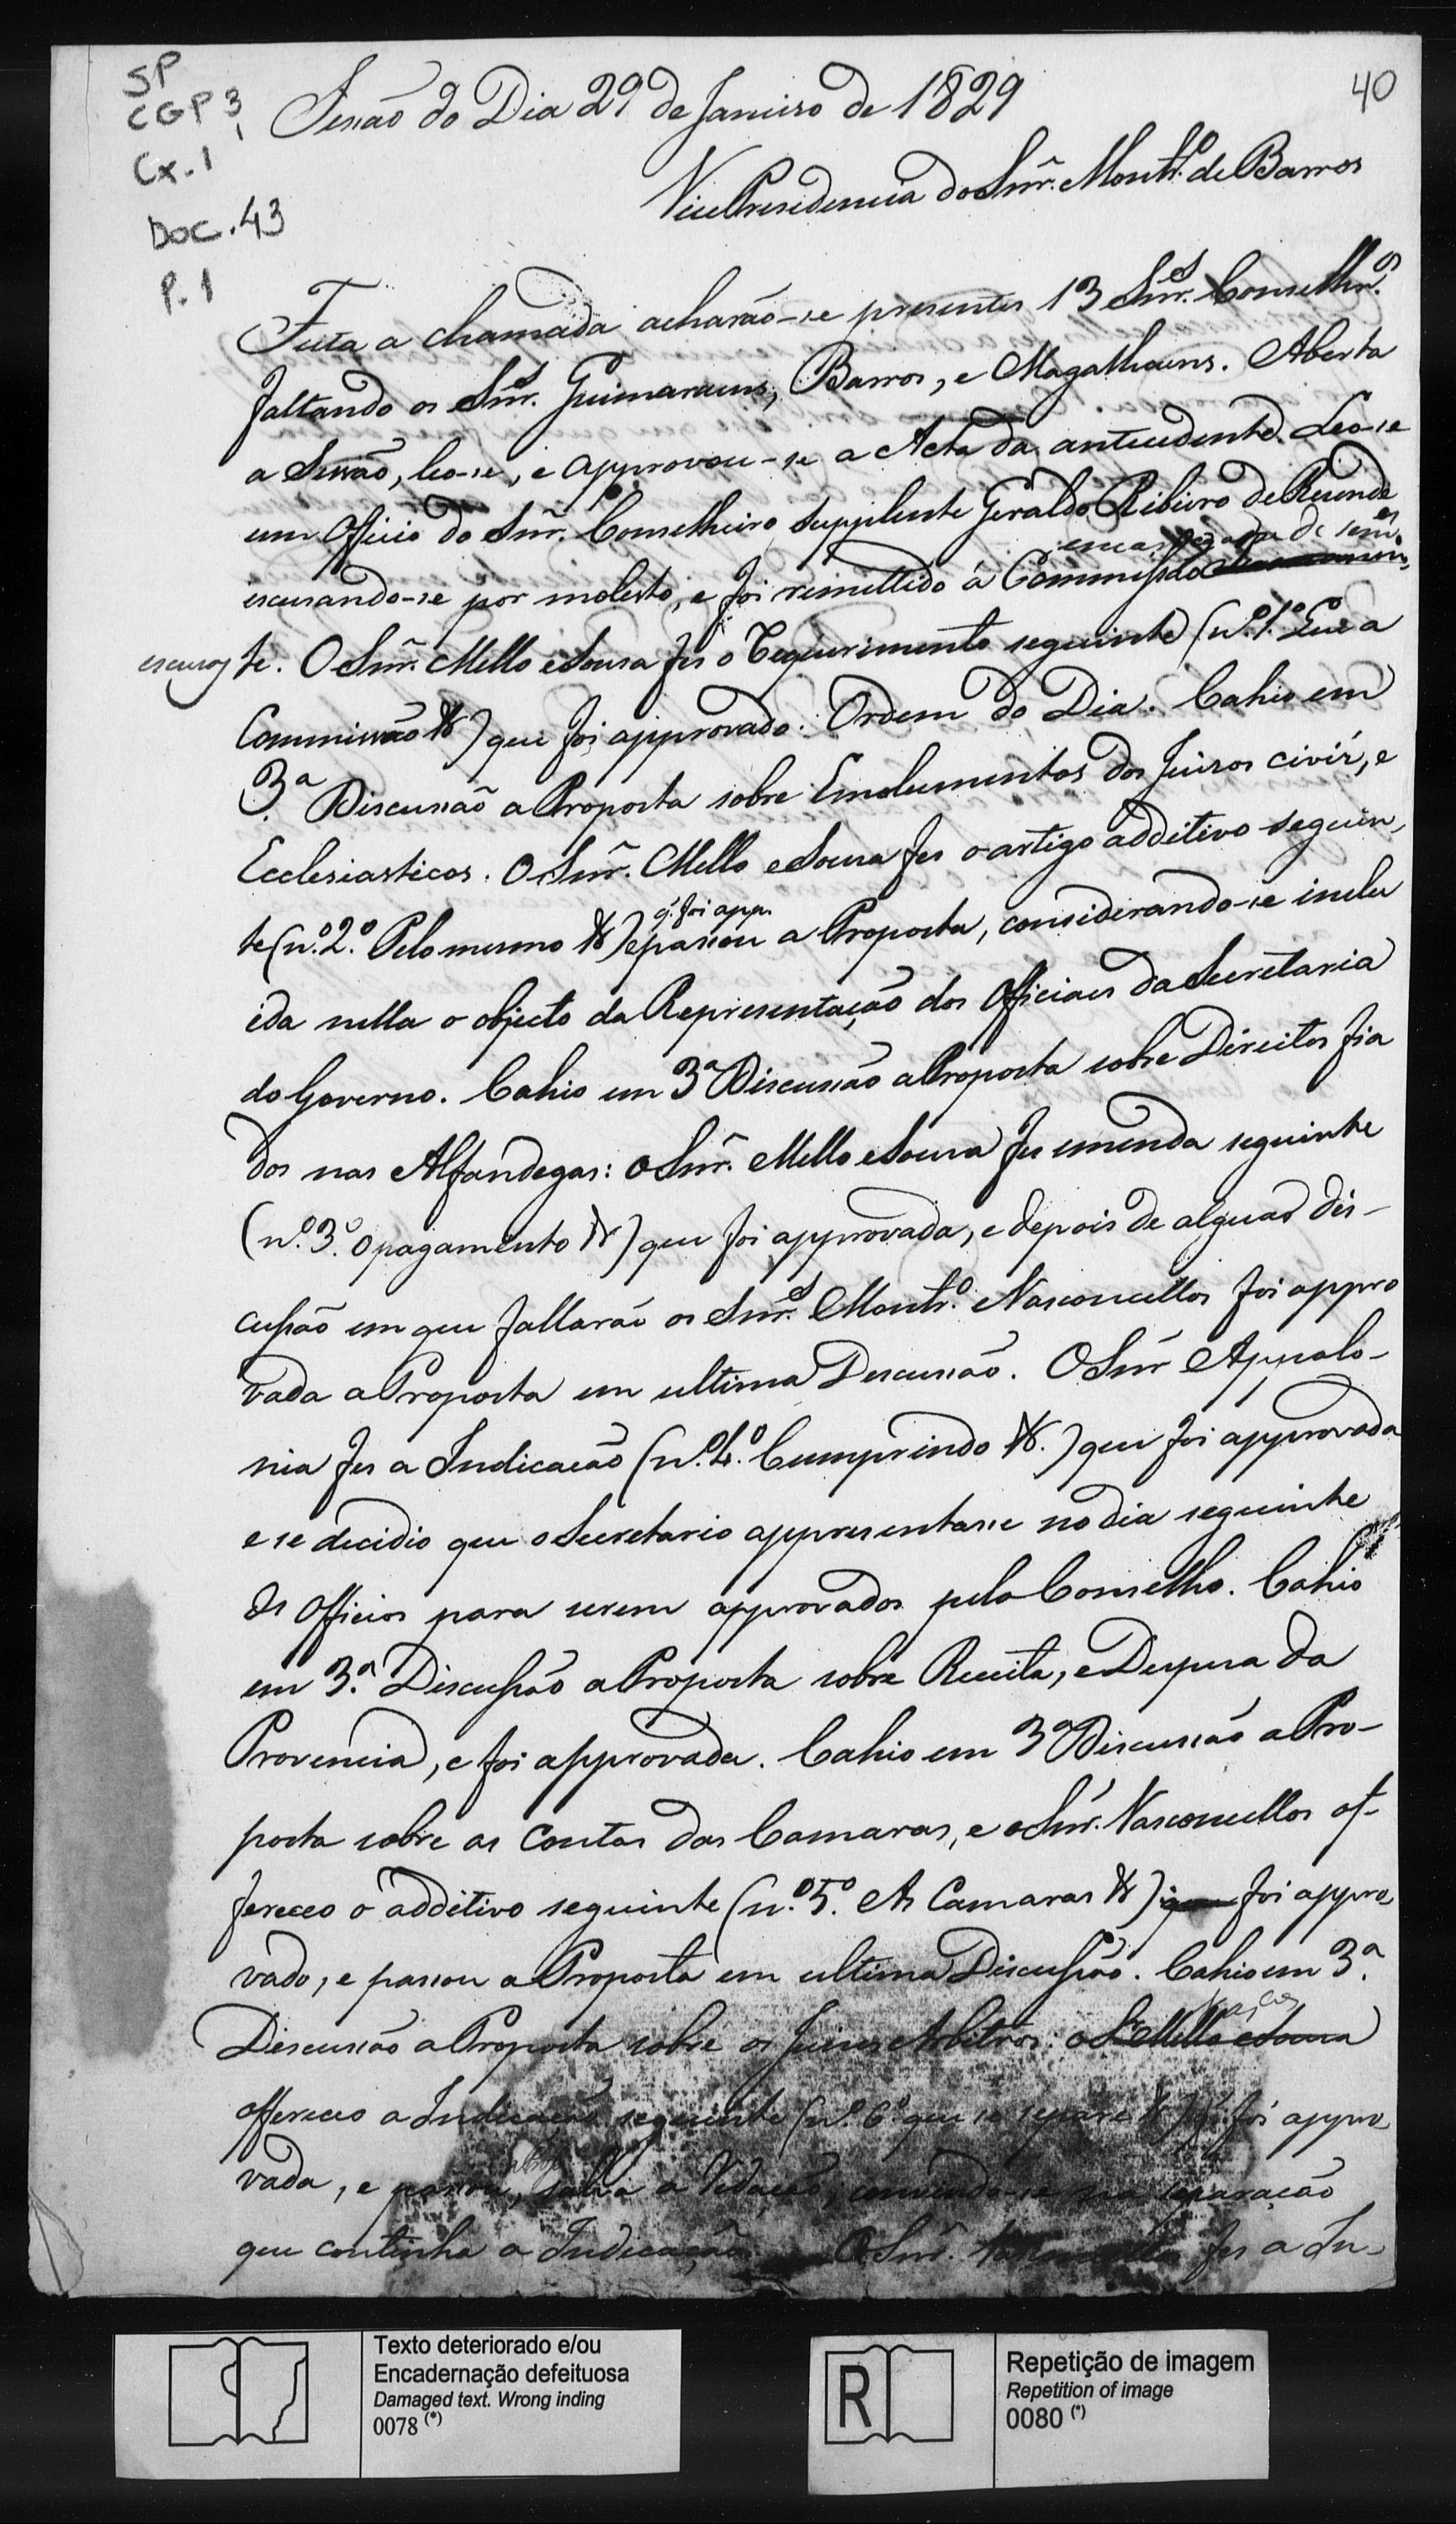 SP
CGP 3,
Cx. 1
Doc. 43
P. 1
40
Sessão do Dia 29 de Janeiro de 1829
Vice Presidencia do Snr. Montr.º de Barros
Feita a chamada acharão-se presentes 13 Snr.s Conselhr.os
faltando os Snr.s Guimaraens, Barros, e Magalhaens. Aberta
a Sessão, leo-se, e approvou-se a Acta da antecedente. Leo-se
um Officio do Snr. Conselheiro Supplente Geraldo Ribeiro de Resende
encarregada de sem.es
escusando-se por molesto, e foi remettido á Commissão
escusas te. O Snr. Mello e Sousa fes o Requerimento seguinte (n.º 1.º Que a
Commissão &) que foi approvado. Ordem do Dia. Cahio em
3.ª Discussão a Proposta sobre Emolumentos dos Juizos civis, e
Ecclesiasticos. O Snr. Mello e Sousa fes o artigo additivo seguin,
q. foi app.
te (n.º 2.º Pelo mesmo &) e passou a Proposta, considerando-se inclu
ida nella o objecto da Representação dos Officiaes da Secretaria
do Governo. Cahio em 3.ª Discussão a Proposta sobre Direitos fia
dos nas Alfandegas: o Snr. Mello e Sousa fes emenda seguinte
(n.º 3.º O pagamento &) que foi approvada, e depois de alguã dis-
cussão em que fallarão os Snr.s Montr.º Vasconcellos foi appro
vada a Proposta em ultima Descussão. O Snr Apualo-
nia fes a Indicacão (n.º 4.º Cumprindo &.) que foi approvada
e se decidio que o Secretario appresentasse no dia seguinte
Os Officios para serem approvados pelo Conselho. Cahio
em 3.ª Discussão a Proposta sobre Receita, e Despesa da
Provencia, e foi approvada. Cahio em 3.ª Discussão a Pro-
posta sobre as Contas das Camaras, e o Snr. Vasconcellos of-
fereceo o additivo seguinte (n.º 5.º As Camaras &) que foi appro,
vado, e passou a Proposta em ultima Discussão. Cahio em 3.ª
Discussão a Proposta sobre os Juizes Arbitros: o Sr Mello e Sousa
offereceo a Indicação seguinte (n.º 6.º que se separe &) q. foi appro,
vada, e passou, salva a Redação, convindo-se na separação
que continha a Indicação O Snr. Vasconcellos fes a In-
Texto deteriorado e/ou
Encadernação defeituosa
Damaged text. Wrong inding
0078 (*)
R
Repetição de imagem
Repetition of image
0080 (*)